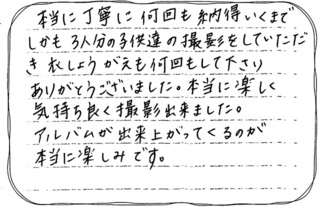 本当に丁寧に何回も納得いくまで
しかも3人分の子供達の撮影をしていただ
き衣しょうがえも何回もして下さり
ありがとうございました。本当に楽しく
気持ち良く撮影出来ました。
アルバムが出来上がってくるのが
本当に楽しみです。